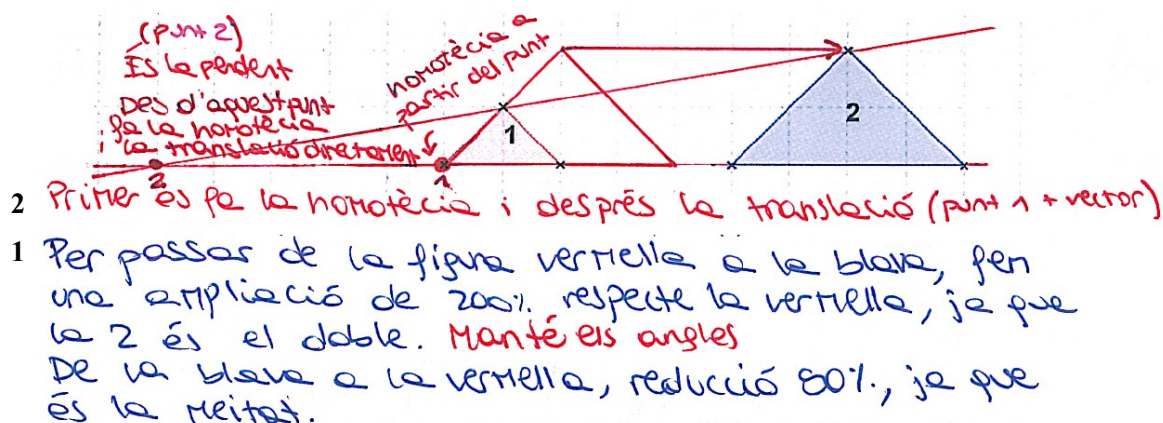 (punt 2)
És la pendent
Des d'aquest punt
fa la homotècia
i la translació directament
homotècia a
partir del punt
1
2
2
1
2 Primer es fa la homotècia i després la translació (punt 1 + vector)
1 Per passar de la figura vermella a la blava, fem
una ampliació de 200% respecte la vermella, ja que
la 2 és el doble. Manté els angles
De la blava a la vermella, reducció 50%, ja que
és la meitat.